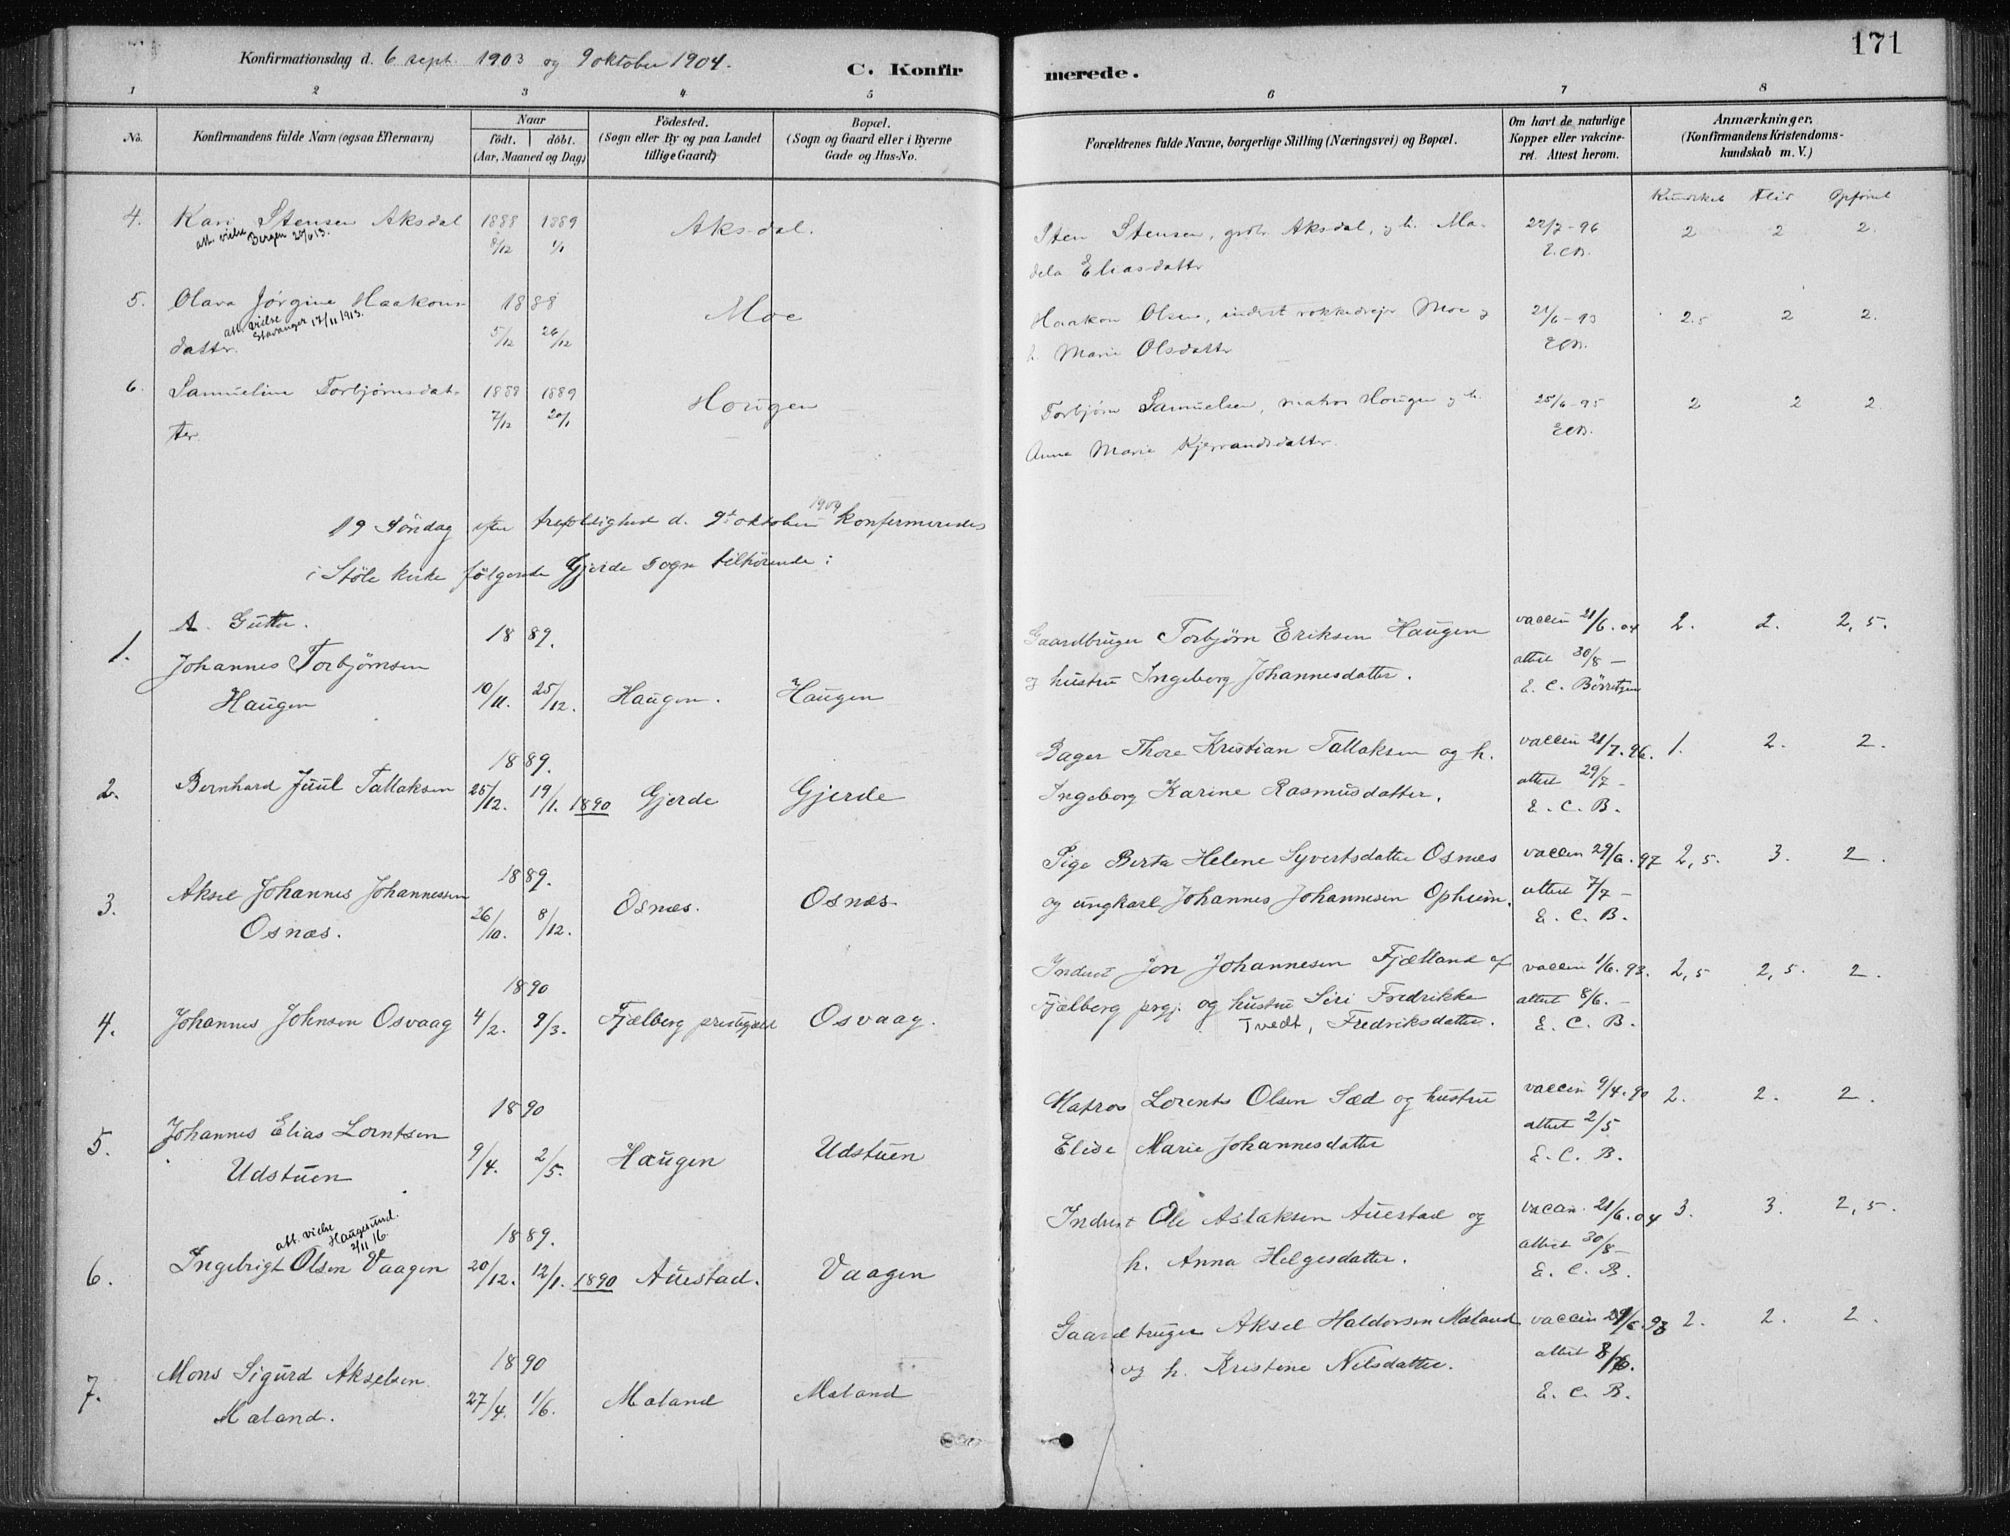 171
Konfirmationsdag d. 6 sept. 1903 og 9 oktober 1904.
C. Konfirmerede.
1 2 3 4 5 6 7 8
No.
Konfirmandens fulde Navn (ogsaa Efternavn)
Naar
födt. döbt.
(Aar, Maaned og Dag)
Födested.
(Sogn eller By og paa Landet
tillige Gaard)
Bopæl.
(Sogn og Gaard eller i Byerne
Gade og Hus-No.
Forældrenes fulde Navne, borgerlige Stilling (Næringsvei) og Bopæl.
Om havt de naturlige
Kopper eller vakcine-
ret. Attest herom.
Anmærkninger.
(Konfirmandens Kristendoms-
kundskab m. V.)
Kundskab Flid Opførsel
4. Kari Stensen Aksdal 1888 1889 Aksdal.
att. vielse Bergen
8/12 1/1
Sten Stensen, grdbr. Aksdal, og h. Ma-
dela Eliasdatter
22/7-96
E.C.B.
2 2 2.
5. Olava Jørgine Haakons- 1888 Moe
att. vielse
Stavanger 17/11 1913.
datter. 5/12 26/12
Haakon Olsen, inderst rokkedreier Moe og
h. Marie Olsdatter
21/6-93
E.C.B.
2.5 2 2.
6. Samueline Torbjørnsdat- 1888 1889 Hougen
ter. 7/12 20/1
Torbjørn Samuelsen, matros Hougen og h.
Anna Marie Kjerrandsdatter.
25/6-95
E.C.B.
2 2 2
19 Søndag efter trefoldighed d. 9de oktober 1904 konfirmeredes
i Stöle kirke følgende Gjerde sogn tilhørende:
A. Gutter.
1. Johannes Torbjørnsen 1889.
Haugen 10/11. 25/12. Haugen. Haugen
Gaardbruger Torbjørn Eriksen Haugen
og hustru Ingeborg Johannesdatter.
vaccin 21/6.04
attest 30/8 -
E. C. Börretzen
2. 2. 2,5.
2. Bernhard Juul Tallaksen 1889.
25/12. 19/1. 1890 Gjerde Gjerde
Bager Thore Kristian Tallaksen og h.
Ingeborg Karine Rasmusdatter.
vaccin 21/7.96.
attest 29/7 -
E. C. B.
1. 2. 2.
3. Aksel Johannes Johannessen 1889.
Osnæs. 26/10. 8/12. Osnæs. Osnæs.
Pige Berta Helene Syvertsdatter Osnæs
og ungkarl Johannes Johannesen Opheim.
vaccin 29/6.97
attest 7/7 -
E. C. B.
2,5. 3. 2.
4. Johannes Johnsen Osvaag 1890
4/2. 9/3. Fjælberg prestegjæld Osvaag.
Inderst Jon Johannesen Fjælland af
Fjælberg prgj. og hustru Siri Fredrikke
Tvedt, Fredriksdatter.
vaccin 1/6.93.
attest 8/6. -
E. C. B.
2,5 2,5. 2.
5. Johannes Elias Lorntsen 1890
Udstuen 9/4. 2/5. Haugen Udstuen
Matros Lorents Olsen Sæd og hustru
Elise Marie Johannesdatter
vaccin 9/4.90
attest 2/5
E. C. B.
2. 2. 2.
att. vielse
Haugesund.
2/11 16.
6. Ingebrigt Olsen Vaagen 1889.
20/12. 12/1. 1890 Auestad. Vaagen
Inderst Ole Aslaksen Auestad og
h. Anna Helgesdatter.
vaccin. 21/6.04
attest 30/8 -
E. C. B.
3. 3. 2,5.
7. Mons Sigurd Akselsen 1890
Maland. 27/4. 1/6. Maland Maland
Gaardbruger Aksel Haldorsen Maland
og h. Kristine Nilsdatter.
vaccin
attest
E. C. B.
2. 2. 2.